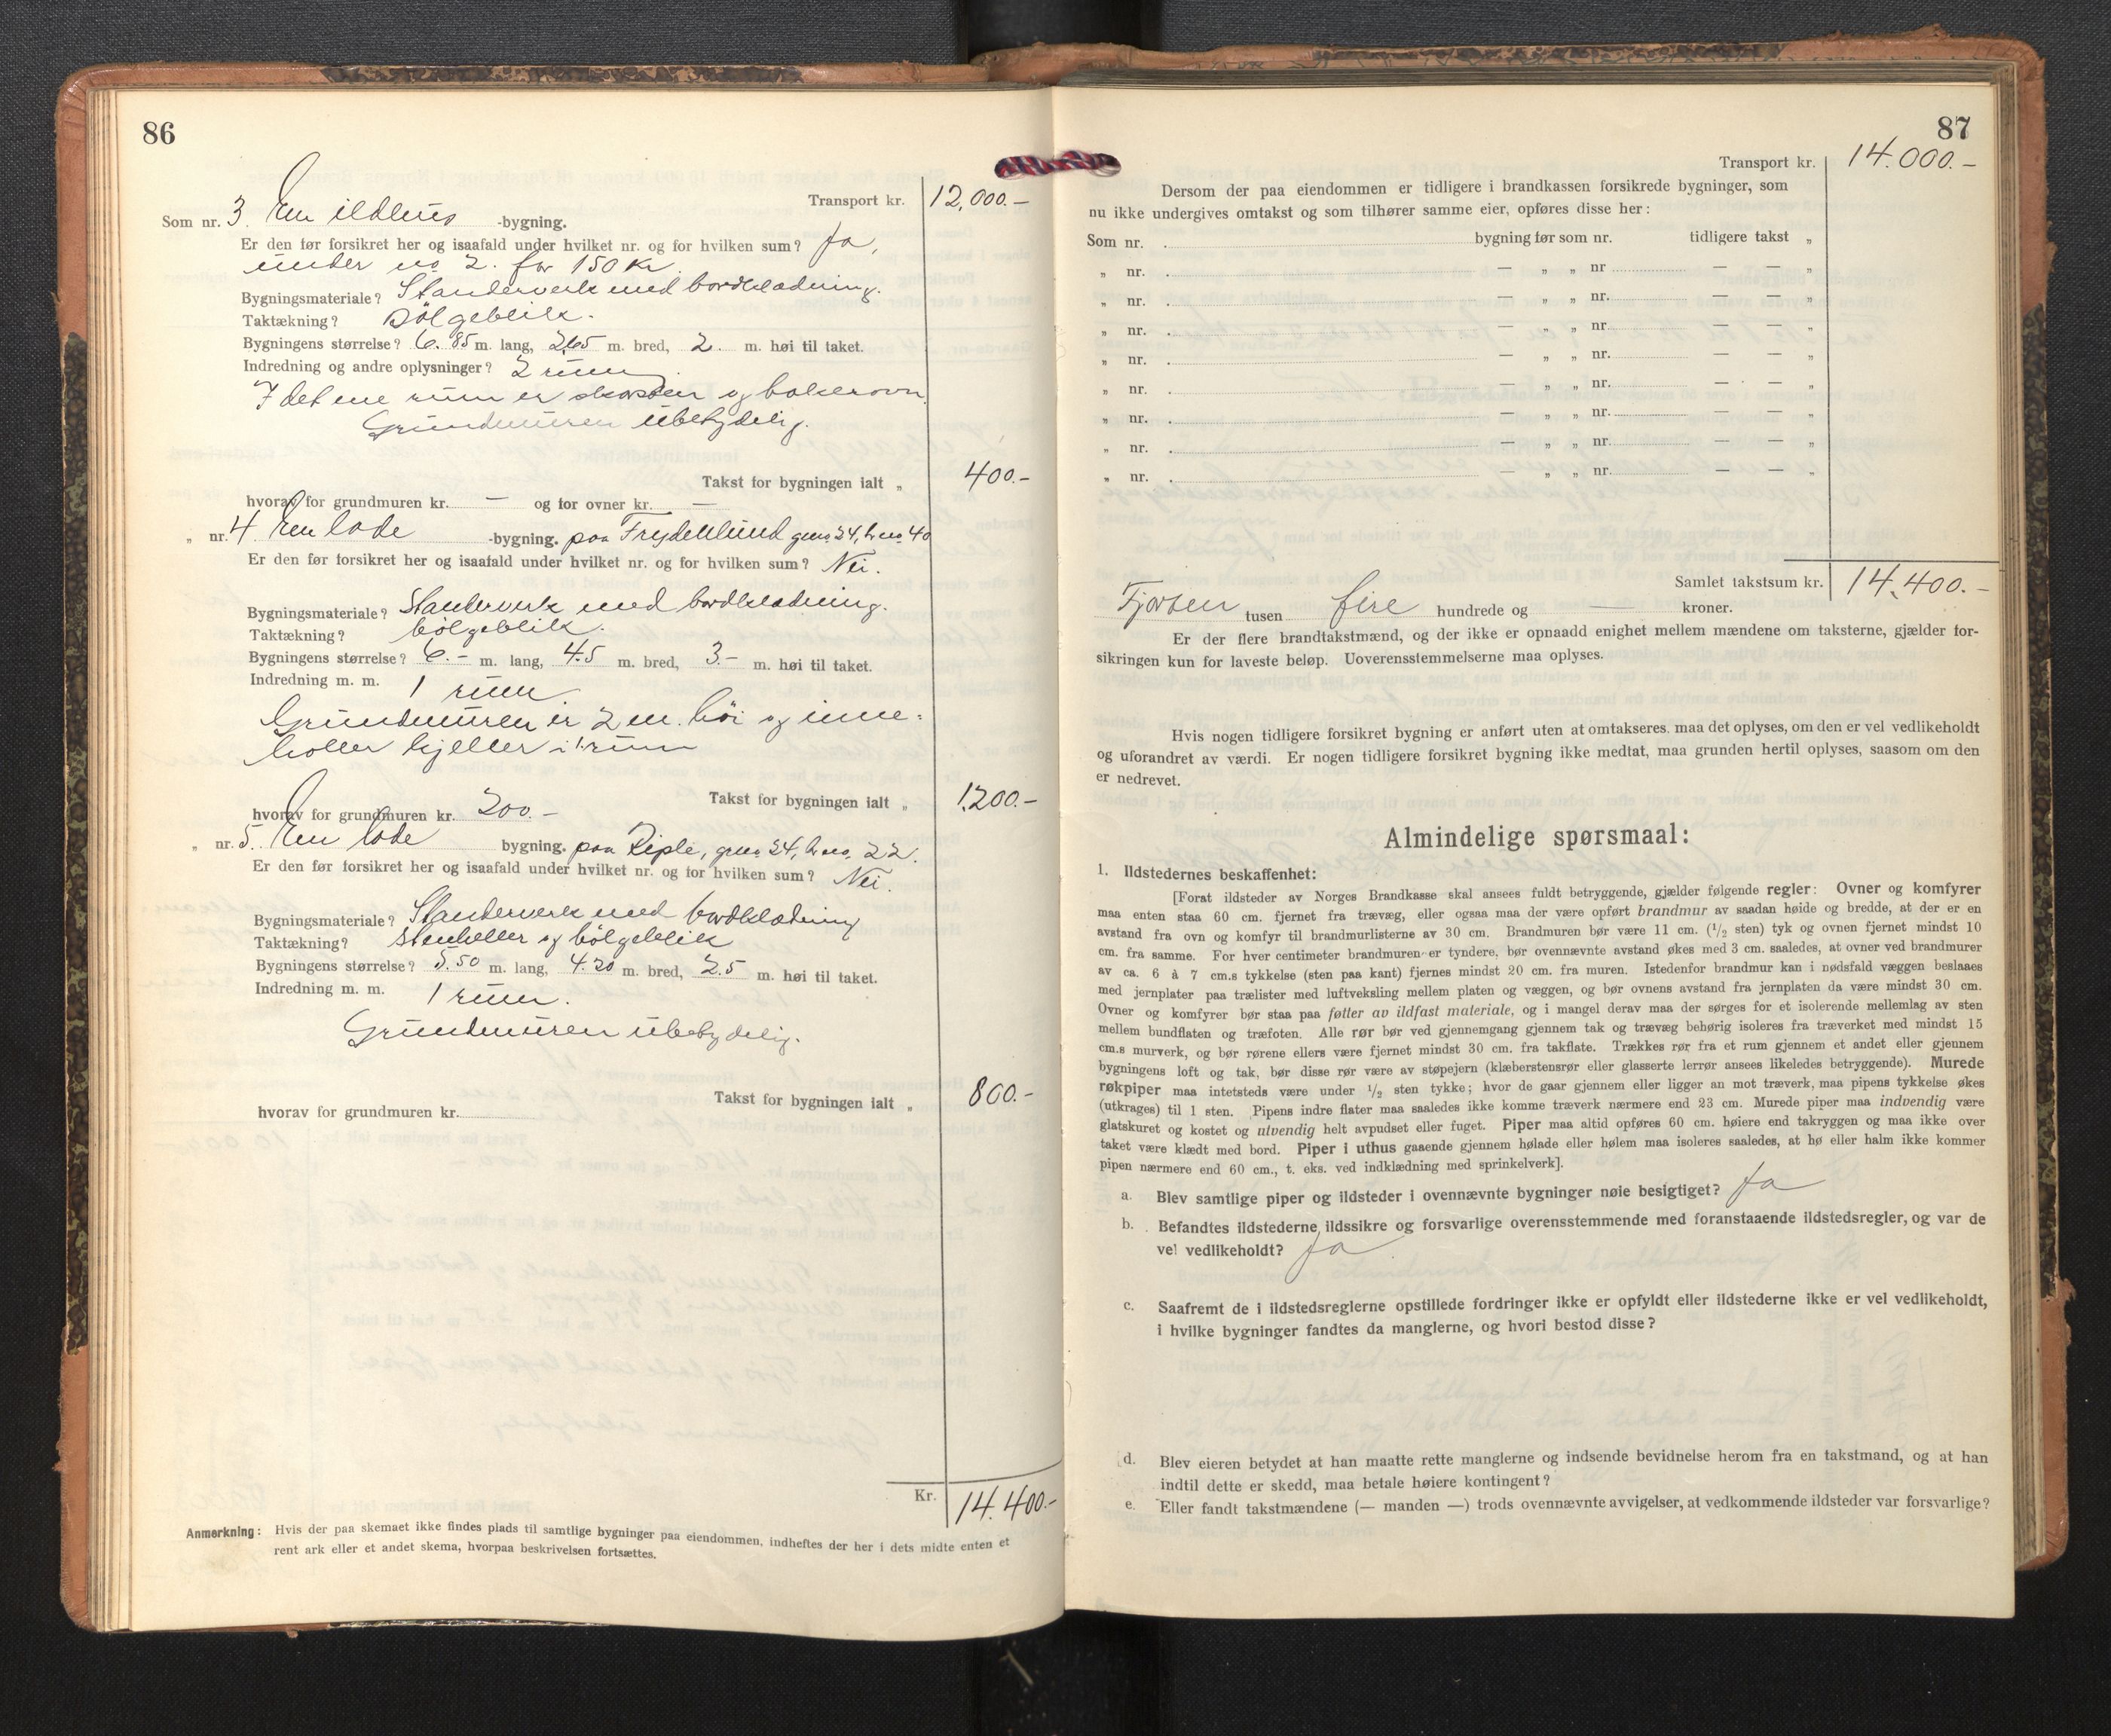 86
Transport kr. 12,000.-
Som nr. 3. En ildhus -bygning.
Er den før forsikret her og isaafald under hvilket nr. og for hvilken sum? Ja,
under no 2. for 150 Kr.
Bygningsmateriale? Standerverk med bordklædning.
Taktækning? Bölgeblik.
Bygningens størrelse? 6.85 m. lang, 2,65 m. bred, 2. m. høi til taket.
Indredning og andre oplysninger? 2 rum.
I det ene rum er skorsten og bakerovn.
Grundmuren ubetydelig.
Takst for bygningen ialt „ 400.-
hvorav for grundmuren kr. — og for ovner kr. —
„ nr. 4. En løde -bygning. paa Frydenlund gno. 24, bno. 40
Er den før forsikret her og isaafald under hvilket nr. og for hvilken sum? Nei.
Bygningsmateriale? Standerverk med bordklædning.
Taktækning? bölgeblik.
Bygningens størrelse? 6.- m. lang, 4.5 m. bred, 3.- m. høi til taket.
Indredning m. m. 1 rum.
Grundmuren er 2 m. höi og inne-
holler kjeller i 1 rum
Takst for bygningen ialt „ 1.200.-
hvorav for grundmuren kr. 200.-
„ nr. 5. En løde bygning. paa Riple, gno. 24, bno. 22.
Er den før forsikret her og isaafald under hvilket nr. og for hvilken sum? Nei.
Bygningsmateriale? Standerverk med bordklædning
Taktækning? Stenheller og bölgeblik
Bygningens størrelse? 5.50 m. lang, 4.20 m. bred, 2.5 m. høi til taket.
Indredning m. m. 1 rum.
Grundmuren ubetydelig.
Takst for bygningen ialt „ 800.-
hvorav for grundmuren kr.
Kr. 14.400.-
Anmerkning: Hvis der paa skemaet ikke findes plads til samtlige bygninger paa eiendommen, indheftes der her i dets midte enten et
rent ark eller et andet skema, hvorpaa beskrivelsen fortsættes.
87
Transport kr. 14.000.-
Dersom der paa eiendommen er tidligere i brandkassen forsikrede bygninger, som
nu ikke undergives omtakst og som tilhører samme eier, opføres disse her:
Som nr. bygning før som nr. tidligere takst „
„ nr. — „ „ nr — — „
„ nr. — „ „ nr. — — „
„ nr. — „ „ nr. — — „
„ nr. — „ „ nr. — — „
„ nr. — „ „ nr. — — „
„ nr. — „ „ nr. — — „
„ nr. — „ „ nr. — — „
„ nr. — „ „ nr. — — „
Samlet takstsum kr. 14.400.-
Fjorten tusen fire hundrede og — kroner.
Er der flere brandtakstmænd, og der ikke er opnaadd enighet mellem mændene om taksterne, gjælder for-
sikringen kun for laveste beløp. Uoverensstemmelserne maa oplyses.
Hvis nogen tidligere forsikret bygning er anført uten at omtakseres. maa det oplyses, om den er vel vedlikeholdt
og uforandret av værdi. Er nogen tidligere forsikret bygning ikke medtat, maa grunden hertil oplyses, saasom om den
er nedrevet.
Almindelige spørsmaal:
1. Ildstedernes beskaffenhet:
[Forat ildsteder av Norges Brandkasse skal ansees fuldt betryggende, gjælder følgende regler: Ovner og komfyrer
maa enten staa 60 cm. fjernet fra trævæg, eller ogsaa maa der være opført brandmur av saadan høide og bredde, at der er en
avstand fra ovn og komfyr til brandmurlisterne av 30 cm. Brandmuren bør være 11 cm. (1/2 sten) tyk og ovnen fjernet mindst 10
cm. fra samme. For hver centimeter brandmuren er tyndere, bør ovennævnte avstand økes med 3 cm. saaledes, at ovner ved brandmurer
av ca. 6 à 7 cm.s tykkelse (sten paa kant) fjernes mindst 20 cm. fra muren. Istedenfor brandmur kan i nødsfald væggen beslaaes
med jernplater paa trælister med luftveksling mellem platen og væggen, og bør ovnens avstand fra jernplaten da være mindst 30 cm.
Ovner og komfyrer bør staa paa føtter av ildfast materiale, og i mangel derav maa der sørges for et isolerende mellemlag av sten
mellem bundflaten og træfoten. Alle rør bør ved gjennemgang gjennem tak og trævæg behørig isoleres fra træverket med mindst 15
cm.s murverk, og bør rørene ellers være fjernet mindst 30 cm. fra takflate. Trækkes rør fra et rum gjennem et andet eller gjennem
bygningens loft og tak, bør disse rør være av støpejern (klæberstensrør eller glasserte lerrør ansees likeledes betryggende). Murede
røkpiper maa intetsteds være under 1/2 sten tykke; hvor de gaar gjennem eller ligger an mot træverk, maa pipens tykkelse økes
(utkrages) til 1 sten. Pipens indre flater maa saaledes ikke komme træverk nærmere end 23 cm. Murede piper maa indvendig være
glatskuret og kostet og utvendig helt avpudset eller fuget. Piper maa altid opføres 60 cm. høiere end takryggen og maa ikke over
taket være klædt med bord. Piper i uthus gaaende gjennem hølade eller hølem maa isoleres saaledes, at hø eller halm ikke kommer
pipen nærmere end 60 cm., t. eks. ved indklædning med sprinkelverk].
a. Blev samtlige piper og ildsteder i ovennævnte bygninger nøie besigtiget? Ja
b. Befandtes ildstederne ildssikre og forsvarlige overensstemmende med foranstaaende ildstedsregler, og var de
vel vedlikeholdt? Ja
c. Saafremt de i ildstedsreglerne opstillede fordringer ikke er opfyldt eller ildstederne ikke er vel vedlikeholdt,
i hvilke bygninger fandtes da manglerne, og hvori bestod disse?
d. Blev eieren betydet at han maatte rette manglerne og indsende bevidnelse herom fra en takstmand, og at han
indtil dette er skedd, maa betale høiere kontingent?
e. Eller fandt takstmændene (— manden —) trods ovennævnte avvigelser, at vedkommende ildsteder var forsvarlige?